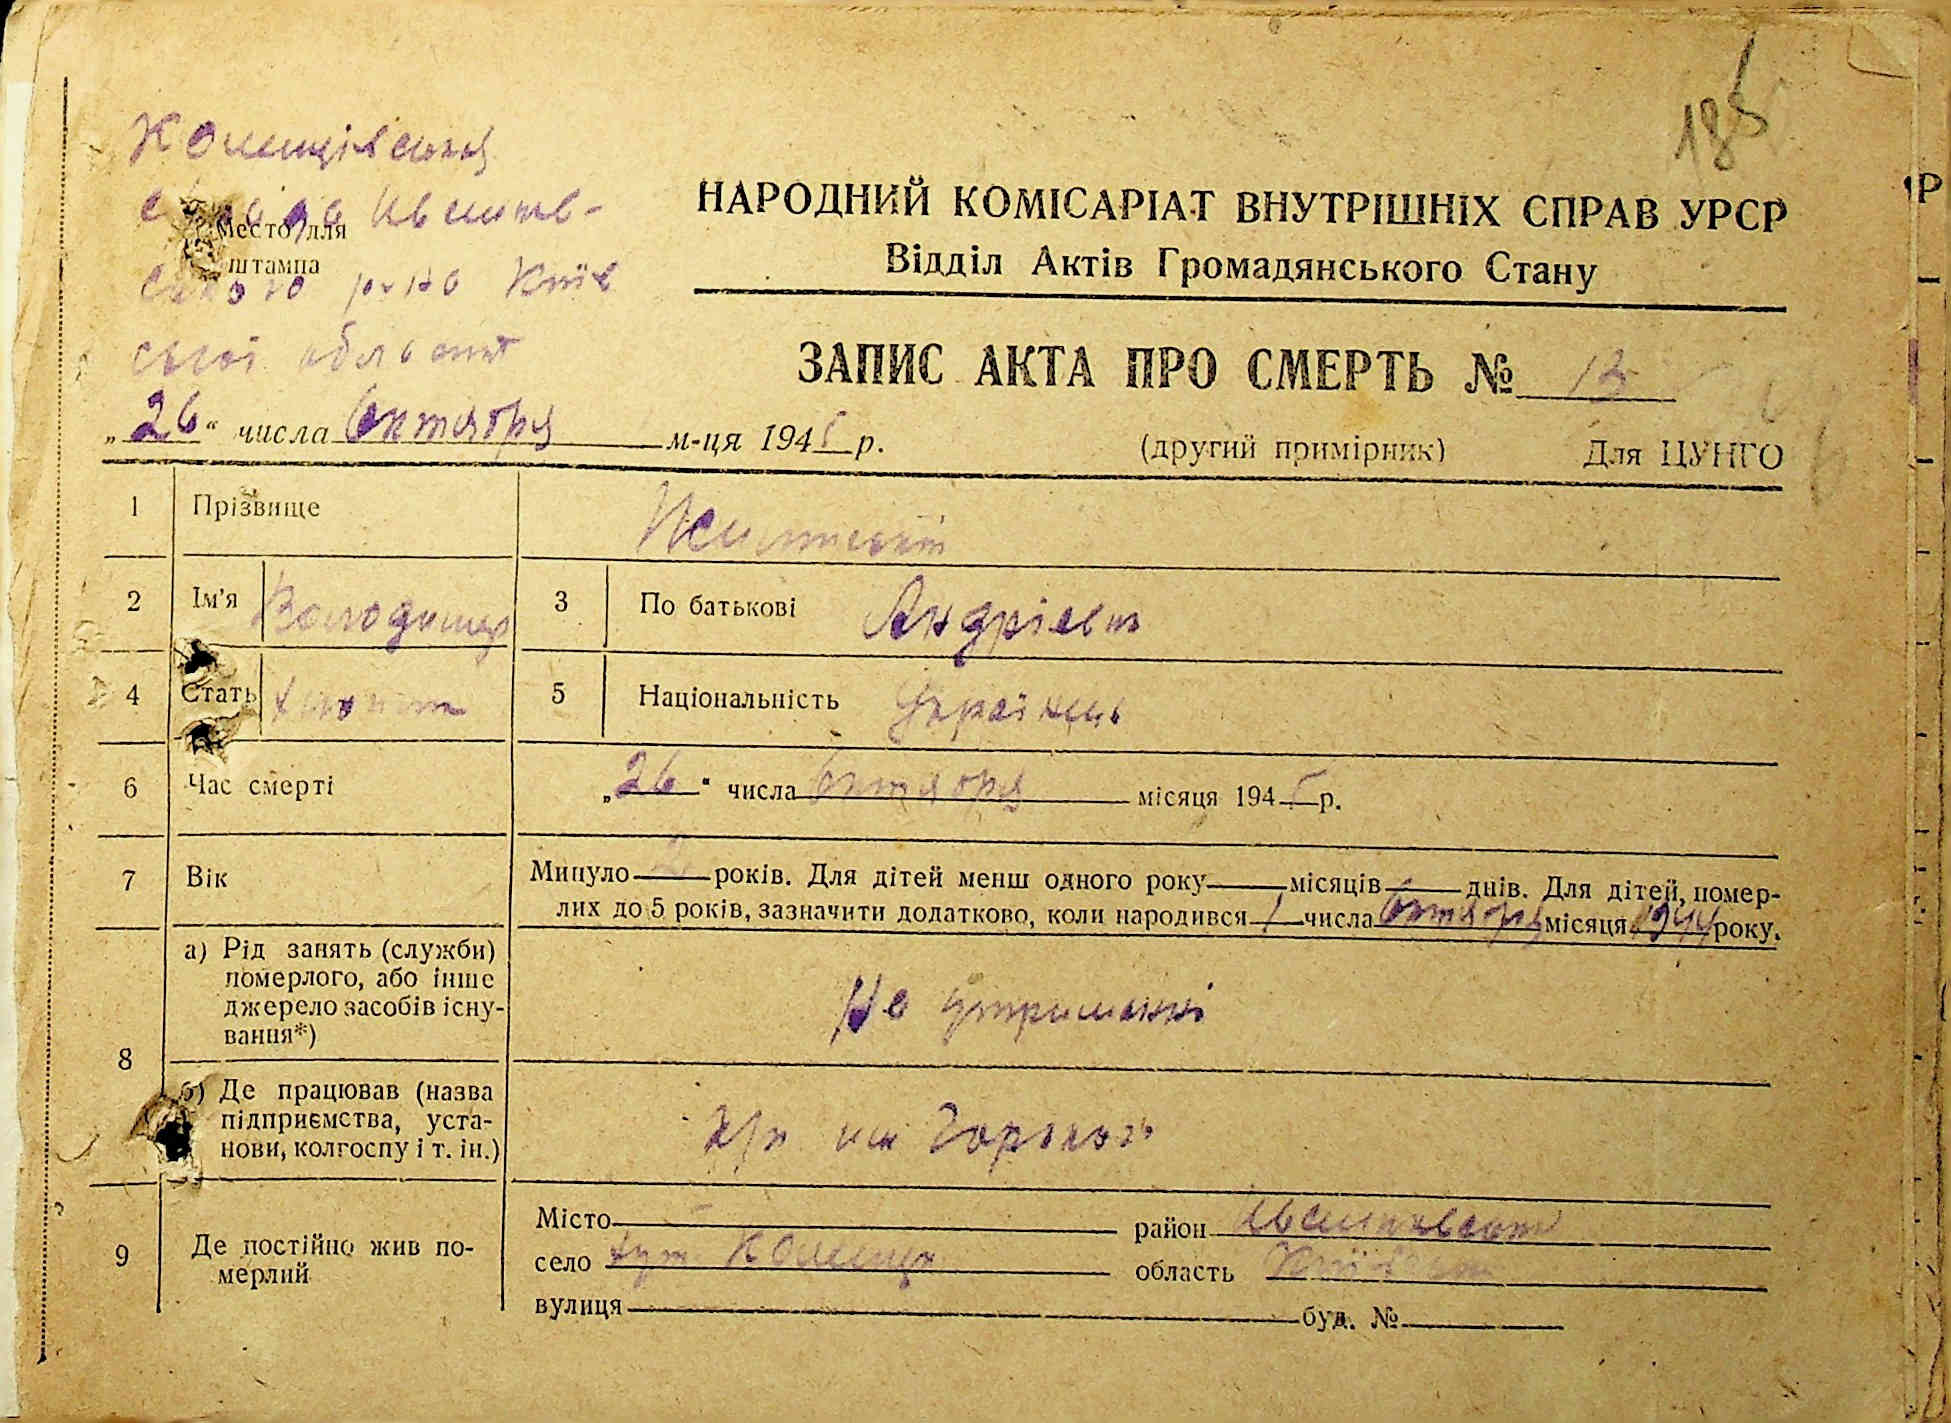 188
Сільрада
Место для
штампа
ського р-на Київ
ської області
НАРОДНИЙ КОМІСАРІАТ ВНУТРІШНІХ СПРАВ УРСР
Відділ Актів Громадянського Стану
ЗАПИС АКТА ПРО СМЕРТЬ № 13
„26“ числа Октября м-ця 1945 р.
(другий примірник) Для ЦУНГО
1 Прізвище
2 Ім'я Володимир 3 По батькові Андрієвич
4 Стать 5 Національність Українець
6 Час смерті „26“ числа Октября місяця 1945 р.
7 Вік Минуло років. Для дітей менш одного року місяців днів. Для дітей, помер-
лих до 5 років, зазначити додатково, коли народився 1 числа Октября місяця 1944 року.
8 а) Рід занять (служби)
померлого, або інше
джерело засобів існу-
вання*)
На утриманні
б) Де працював (назва
підприємства, уста-
нови, колгоспу і т. ін.)
к/г им Горького
9 Де постійно жив по-
мерлий
Місто район
село хут. область Київськ
вулиця буд. №